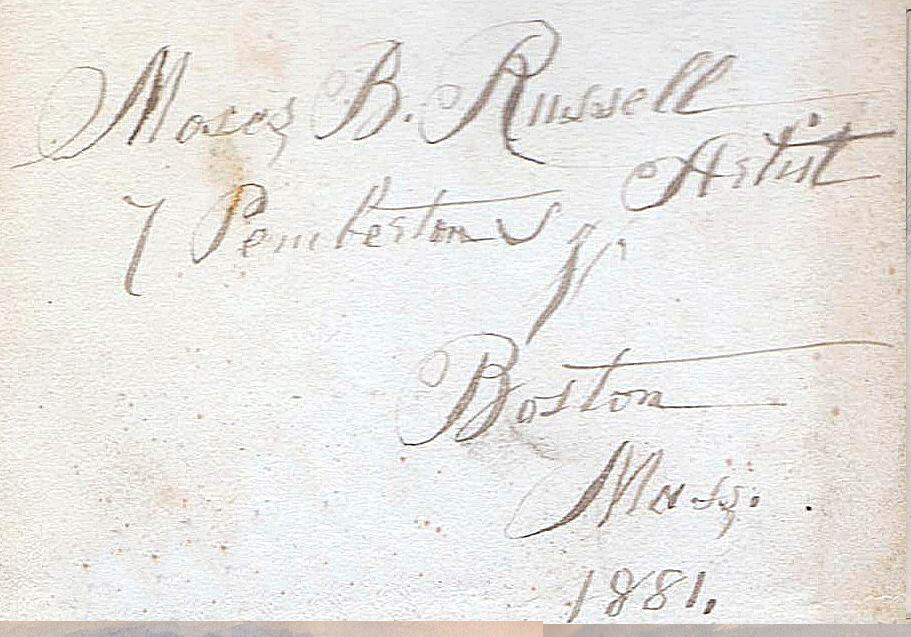 Moses B. Russell
Artist
7 Pemberton Sqr
Boston
Mass.
1881.